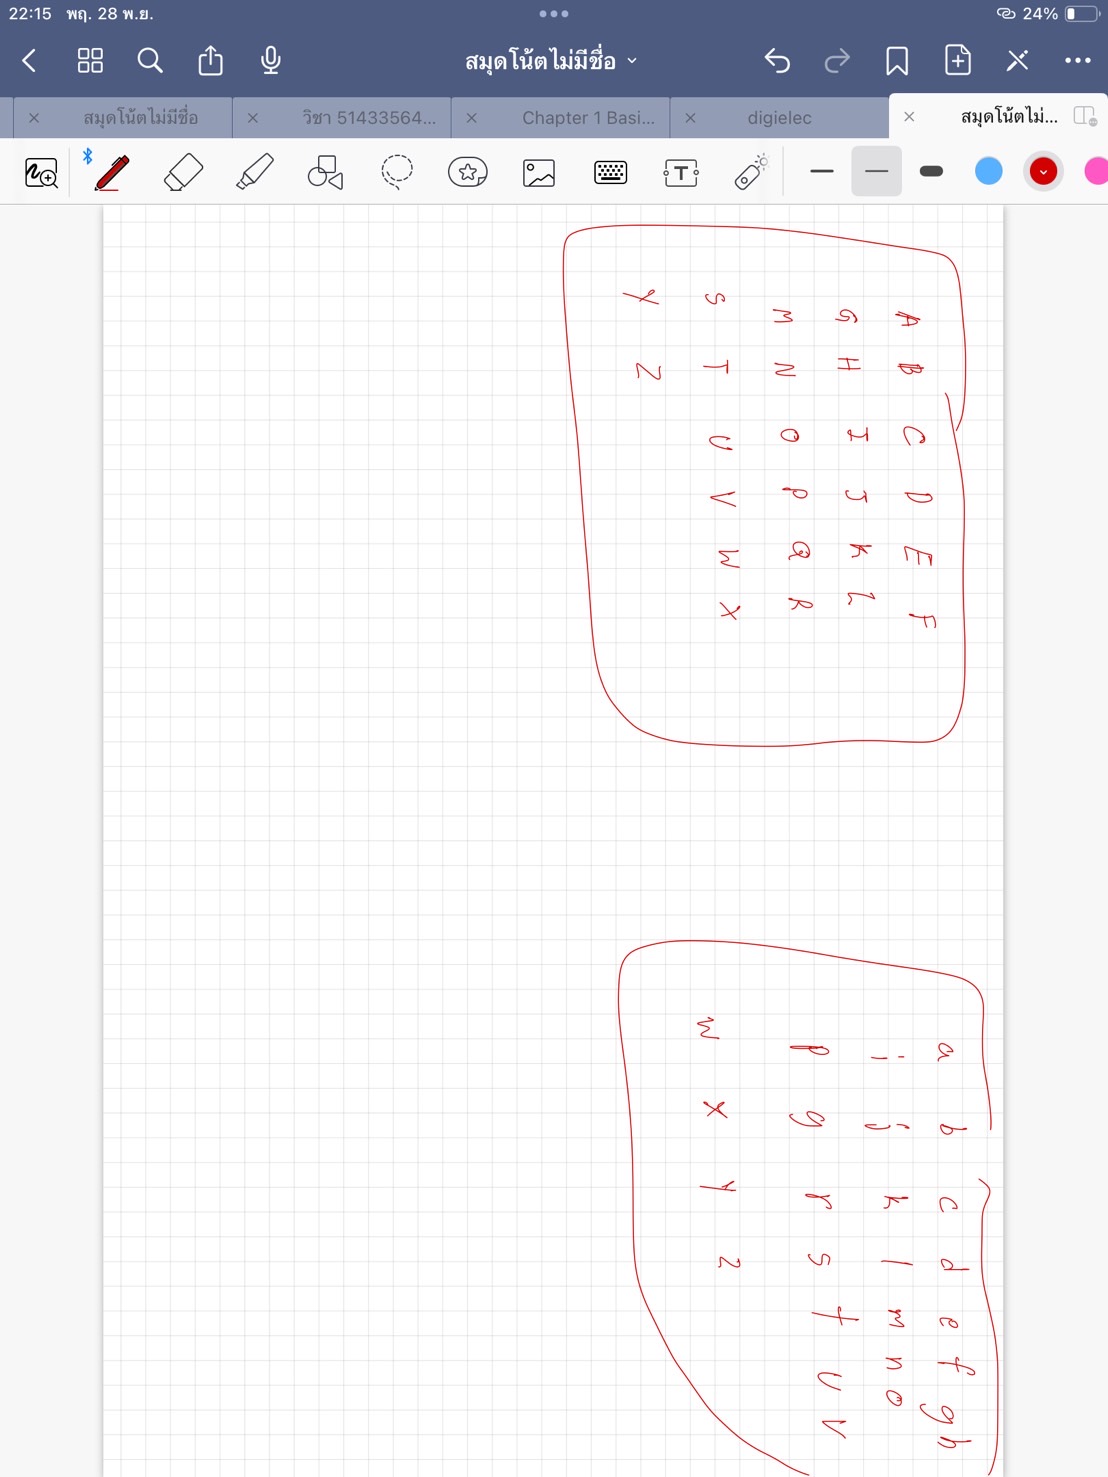 22:15 พฤ. 28 พ.ย.
24%
สมุดโน้ตไม่มีชื่อ
สมุดโน้ตไม่มีชื่อ
วิชา 51433564...
Chapter 1 Basi...
digielec
สมุดโน้ตไม่...
T
A B C D E F
G H I J K L
M N O P Q R
S T U V W X
Y Z
a b c d e f g h
i j k l m n o
p q r s t u v
w x y z